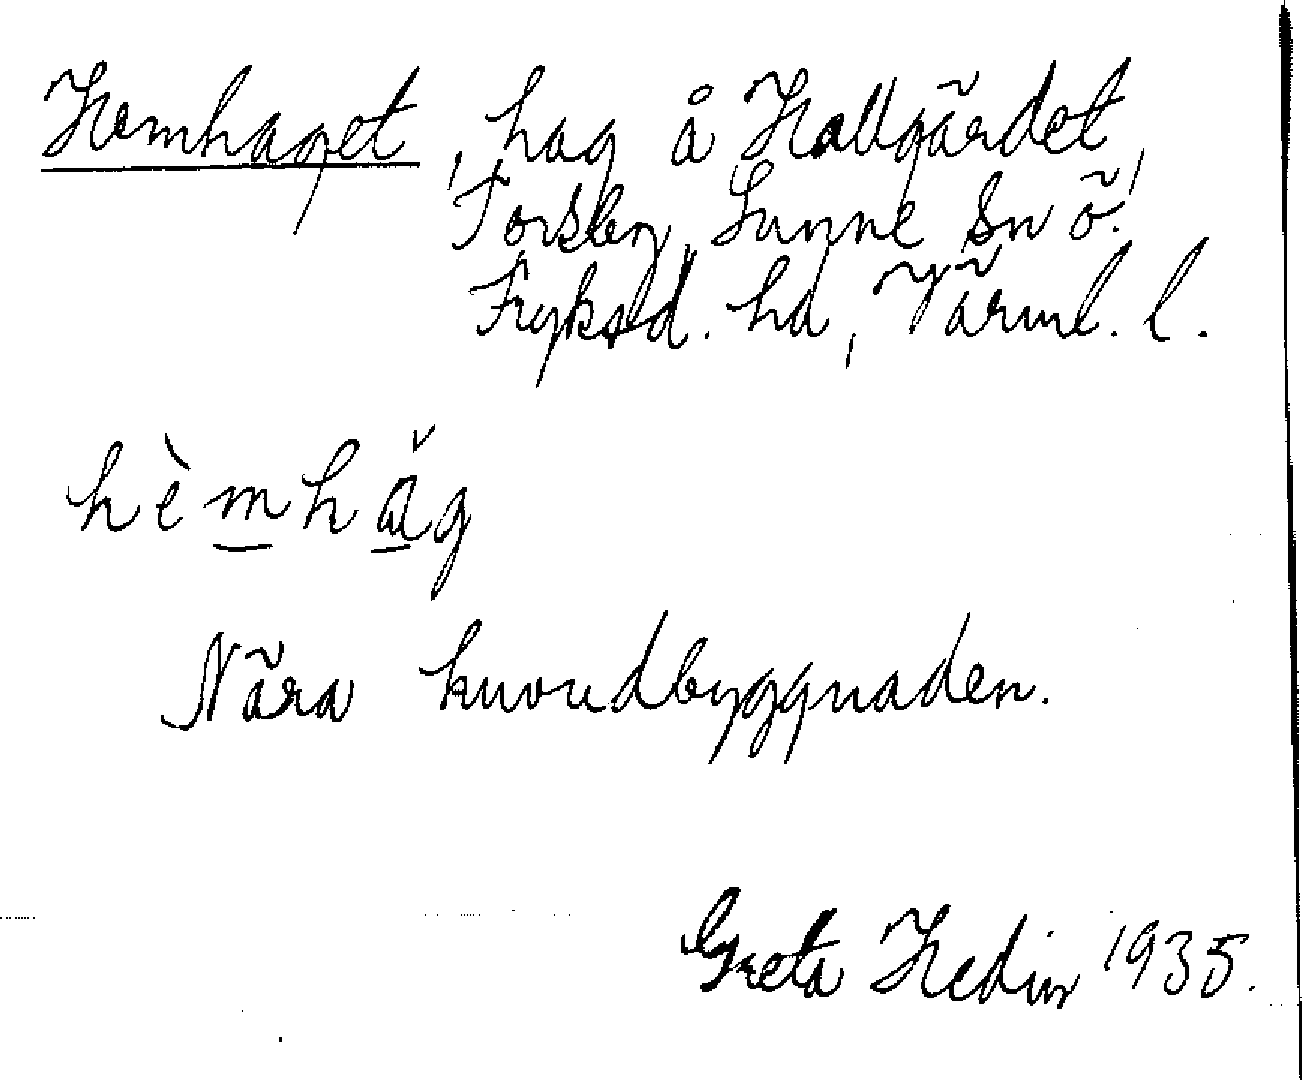 Hemhaget, hag å Hallgärdet,
Torsby, Sunne sn ö.
Fryksd. hd, Värml. l.
hèmhǎg
Nära huvudbyggnaden.
Greta Hedin 1935.